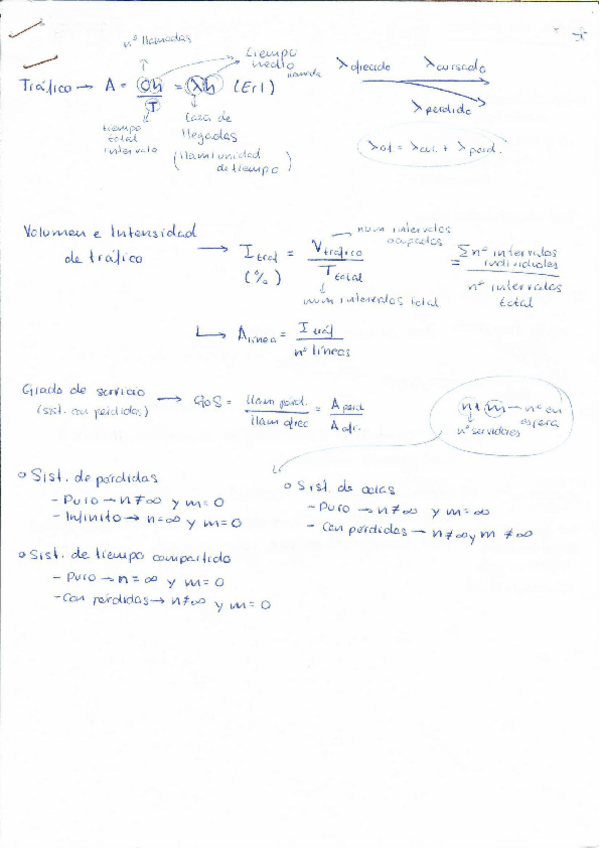 nº llamadas
tiempo medio llamada
Tráfico → A = Oh / T = λh (Erl)
tiempo total intervalo
tasa de llegadas
(llam/unidad de tiempo)
λ ofrecido
λ cursado
λ perdido
λ of = λ cur. + λ perd.
Volumen e Intensidad de tráfico → I traf (%) = V tráfico / T total = Σ nº intervalos individuales / nº intervalos total
num intervalos ocupados
num intervalos total
A línea = I tráf / nº líneas
Grado de servicio (sist. con pérdidas) → GoS = llam perd. / llam ofrec = A perd / A ofr.
n + m → nº en espera
nº servidores
o Sist. de pérdidas
- Puro → n ≠ ∞ y m = 0
- Infinito → n = ∞ y m = 0
o Sist. de colas
- Puro → n ≠ ∞ y m = ∞
- Con pérdidas → n ≠ ∞ y m ≠ ∞
o Sist. de tiempo compartido
- Puro → n = ∞ y m = 0
- Con pérdidas → n ≠ ∞ y m = 0